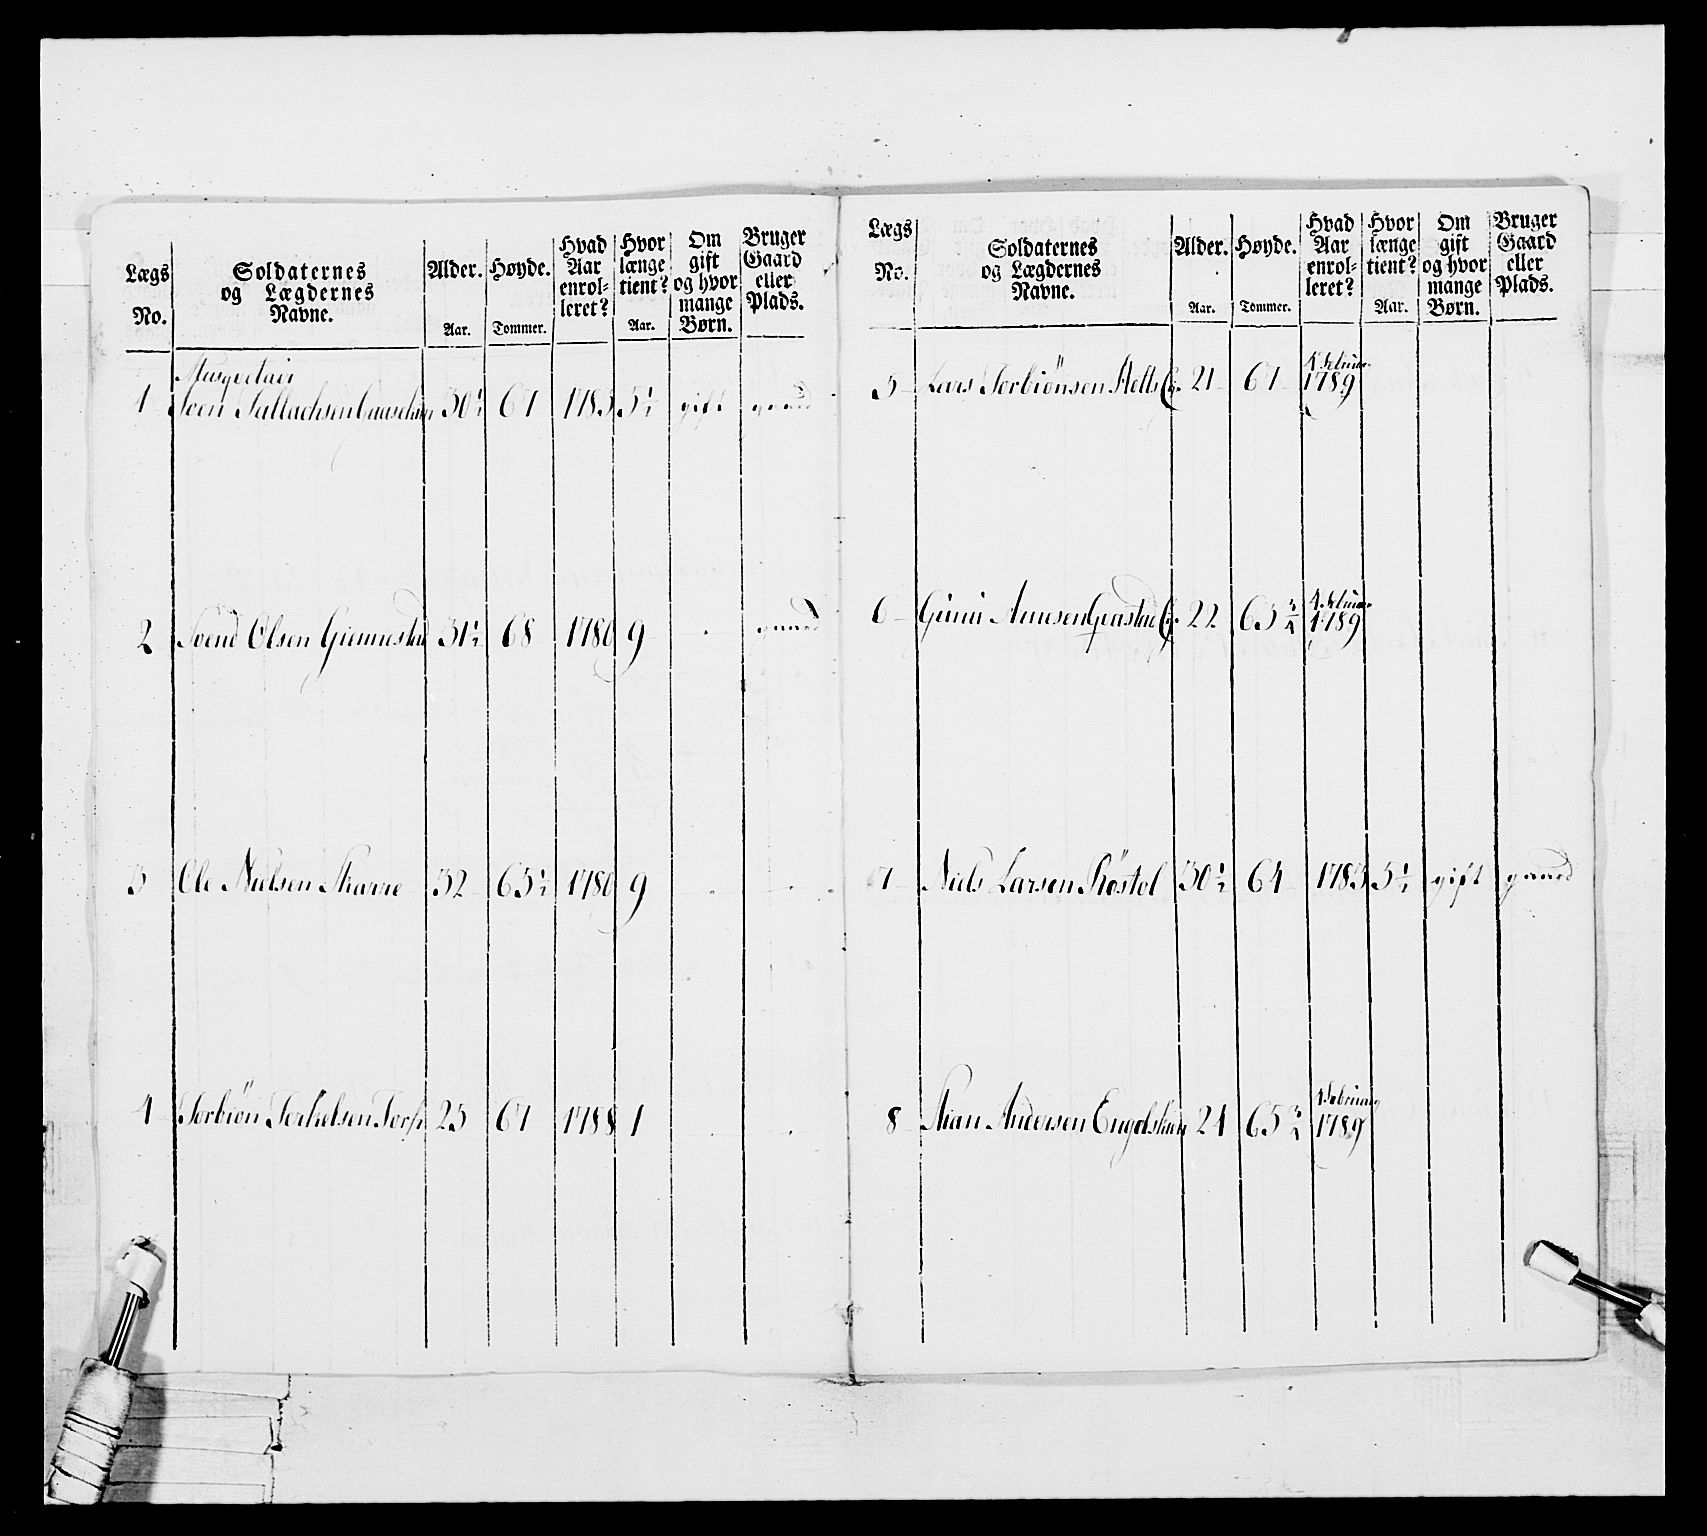 Lægs No. Soldaternes og Lægdernes Navne. Alder. Aar. Høyde. Tommer. Hvad Aar enrol-leret? Hvor længe tient? Aar. Om gift og hvor mange Børn. Bruger Gaard eller Plads.
Musquetair
1 Sven 30½ 67 1783 5½ gift gaard
2 Svend Olsen 31½ 68 1780 9 gaard
3 Ole Nielsen Skarre 32 63½ 1780 9
4 Torbiön Torkelsen 25 67 1788 1
Lægs No. Soldaternes og Lægdernes Navne. Alder. Aar. Høyde. Tommer. Hvad Aar enrol-leret? Hvor længe tient? Aar. Om gift og hvor mange Børn. Bruger Gaard eller Plads.
5 Lars Torbiönsen 21 67 1789
6 22 63¾ 1789
7 Niels Larsen Röstöl 30½ 64 1783 5½ gift gaard
8 Andersen 24 65¾ 1789